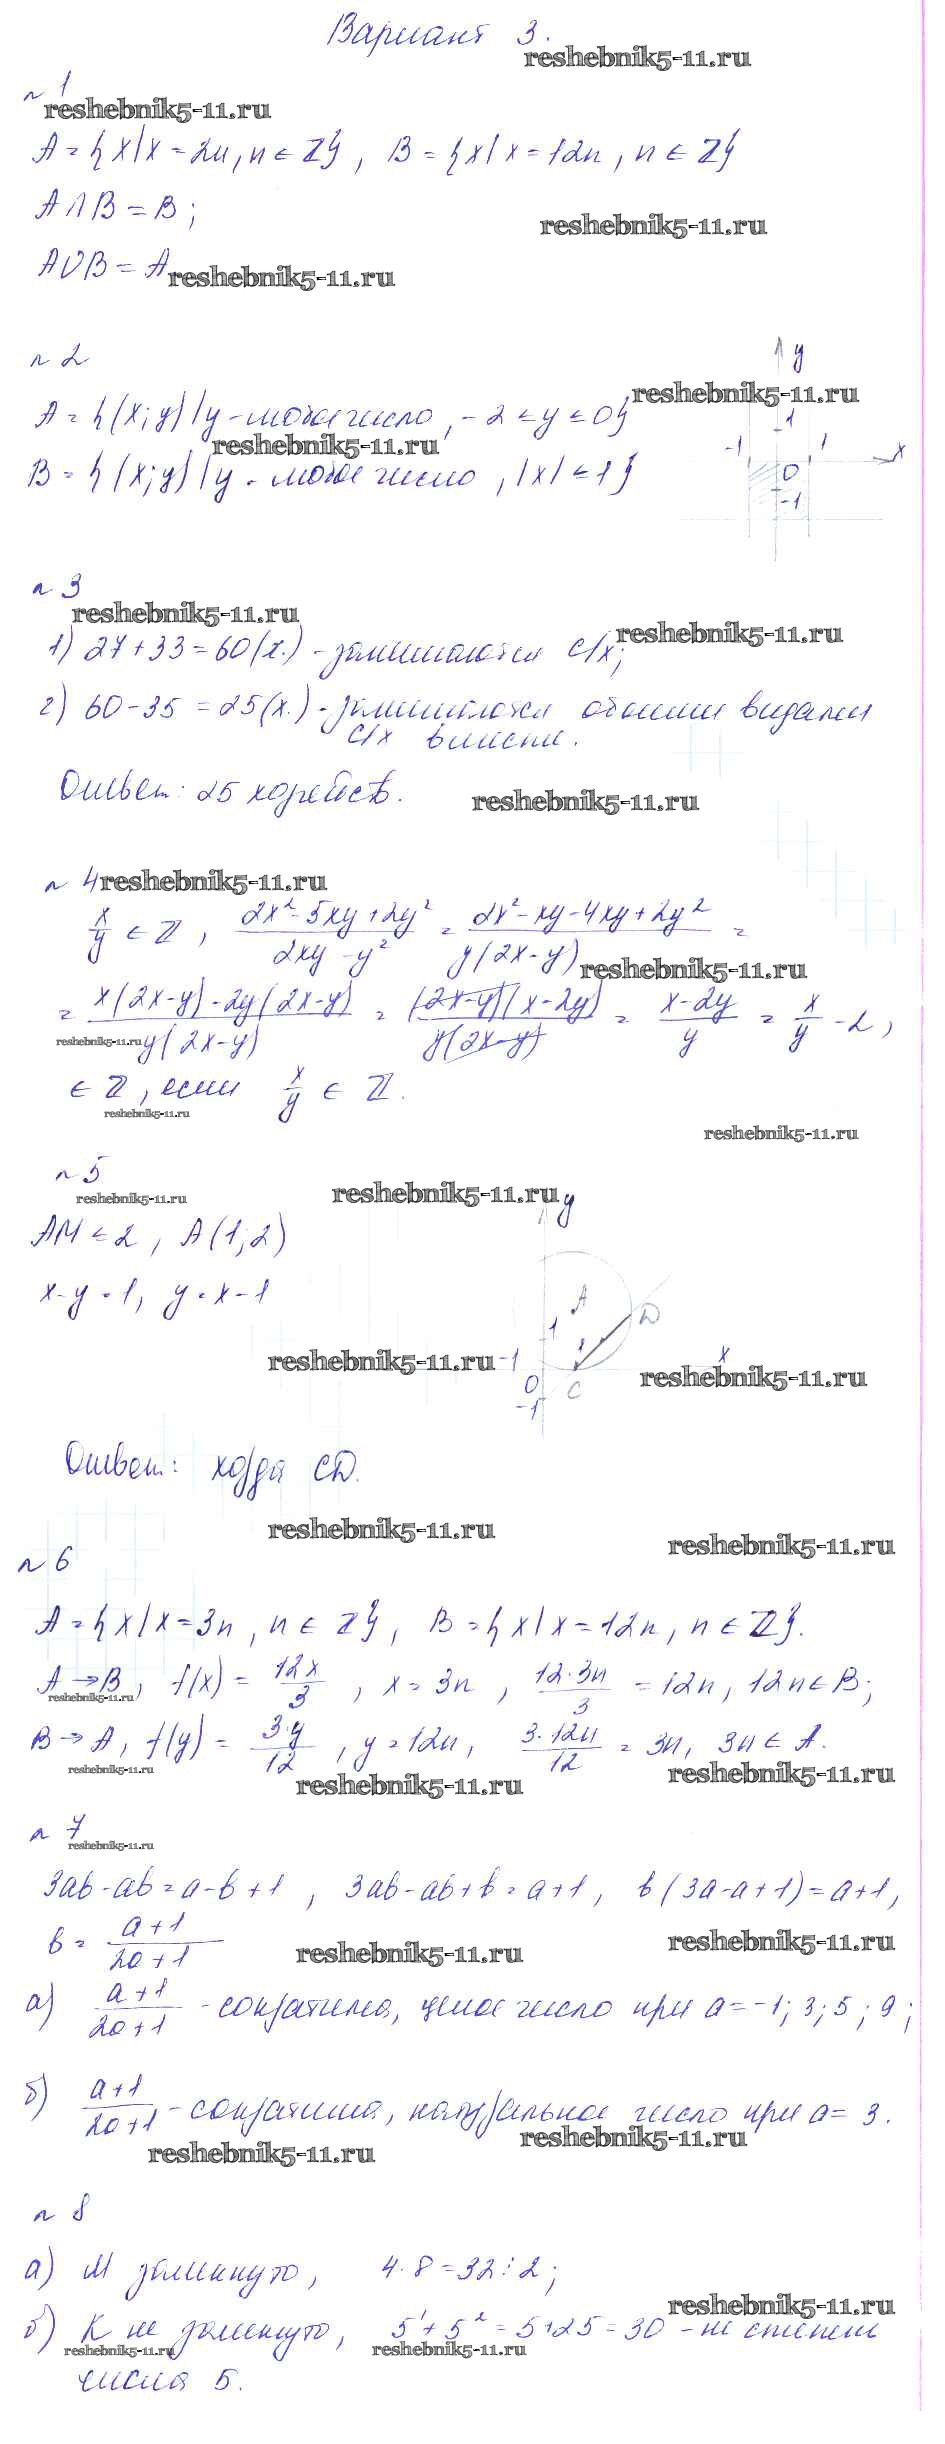 Вариант 3.
reshebnik5-11.ru
№ 1
reshebnik5-11.ru
A = {x | x = 2n, n ∈ Z}, B = {x | x = 12n, n ∈ Z}
A ∩ B = B;
reshebnik5-11.ru
A ∪ B = A
reshebnik5-11.ru
№ 2
y
reshebnik5-11.ru
A = {(x; y) | y - любое число, -2 ≤ y ≤ 0}
1
reshebnik5-11.ru
-1 1 x
B = {(x; y) | y - любое число, |x| ≤ 1}
0
-1
№ 3
reshebnik5-11.ru
1) 27 + 33 = 60 (х.) - занимаются с/х;
reshebnik5-11.ru
2) 60 - 35 = 25 (х.) - занимаются обоими видами
с/х вместе.
Ответ: 25 хозяйств.
reshebnik5-11.ru
№ 4
reshebnik5-11.ru
x/y ∈ Z, (2x² - 5xy + 2y²)/(2xy - y²) = (2x² - xy - 4xy + 2y²)/(y(2x - y)) =
reshebnik5-11.ru
= (x(2x - y) - 2y(2x - y))/(y(2x - y)) = ((2x - y)(x - 2y))/(y(2x - y)) = (x - 2y)/y = x/y - 2,
reshebnik5-11.ru
∈ Z, если x/y ∈ Z.
reshebnik5-11.ru
reshebnik5-11.ru
№ 5
reshebnik5-11.ru
reshebnik5-11.ru
y
AM ≤ 2, A(1; 2)
x - y = 1, y = x - 1
A
1
D
reshebnik5-11.ru
-1
x
reshebnik5-11.ru
0 C
-1
Ответ: хорда CD.
reshebnik5-11.ru
reshebnik5-11.ru
№ 6
A = {x | x = 3n, n ∈ Z}, B = {x | x = 12n, n ∈ Z}.
A → B, f(x) = 12x/3, x = 3n, 12·3n/3 = 12n, 12n ∈ B;
reshebnik5-11.ru
B → A, f(y) = 3·y/12, y = 12n, 3·12n/12 = 3n, 3n ∈ A.
reshebnik5-11.ru
reshebnik5-11.ru
reshebnik5-11.ru
№ 7
reshebnik5-11.ru
3ab - ab = a - b + 1, 3ab - ab + b = a + 1, b(3a - a + 1) = a + 1,
b = (a + 1)/(2a + 1)
reshebnik5-11.ru
reshebnik5-11.ru
а) (a + 1)/(2a + 1) - сократима, целое число при a = -1; 3; 5; 9;
б) (a + 1)/(2a + 1) - сократима, натуральное число при a = 3.
reshebnik5-11.ru
reshebnik5-11.ru
№ 8
а) М замкнуто, 4·8 = 32 ⋮ 2;
reshebnik5-11.ru
б) К не замкнуто, 5¹ + 5² = 5 + 25 = 30 - не степень
reshebnik5-11.ru
reshebnik5-11.ru
числа 5.